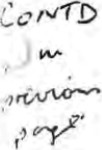 CONTD
in
previous
page